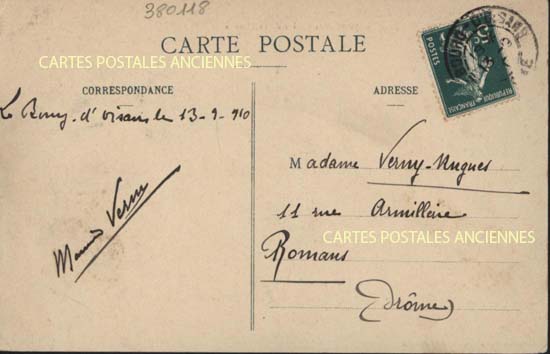 380118
CARTE POSTALE
CARTES POSTALES ANCIENNES
CORRESPONDANCE
ADRESSE
POSTES
REPUBLIQUE FRANÇAISE
Le Bourg-d'oisans le 13-9-910
Madame Verny-Hugues
11 rue Armillerie
CARTES POSTALES ANCIENNES
Romans
(Drôme)
Verny